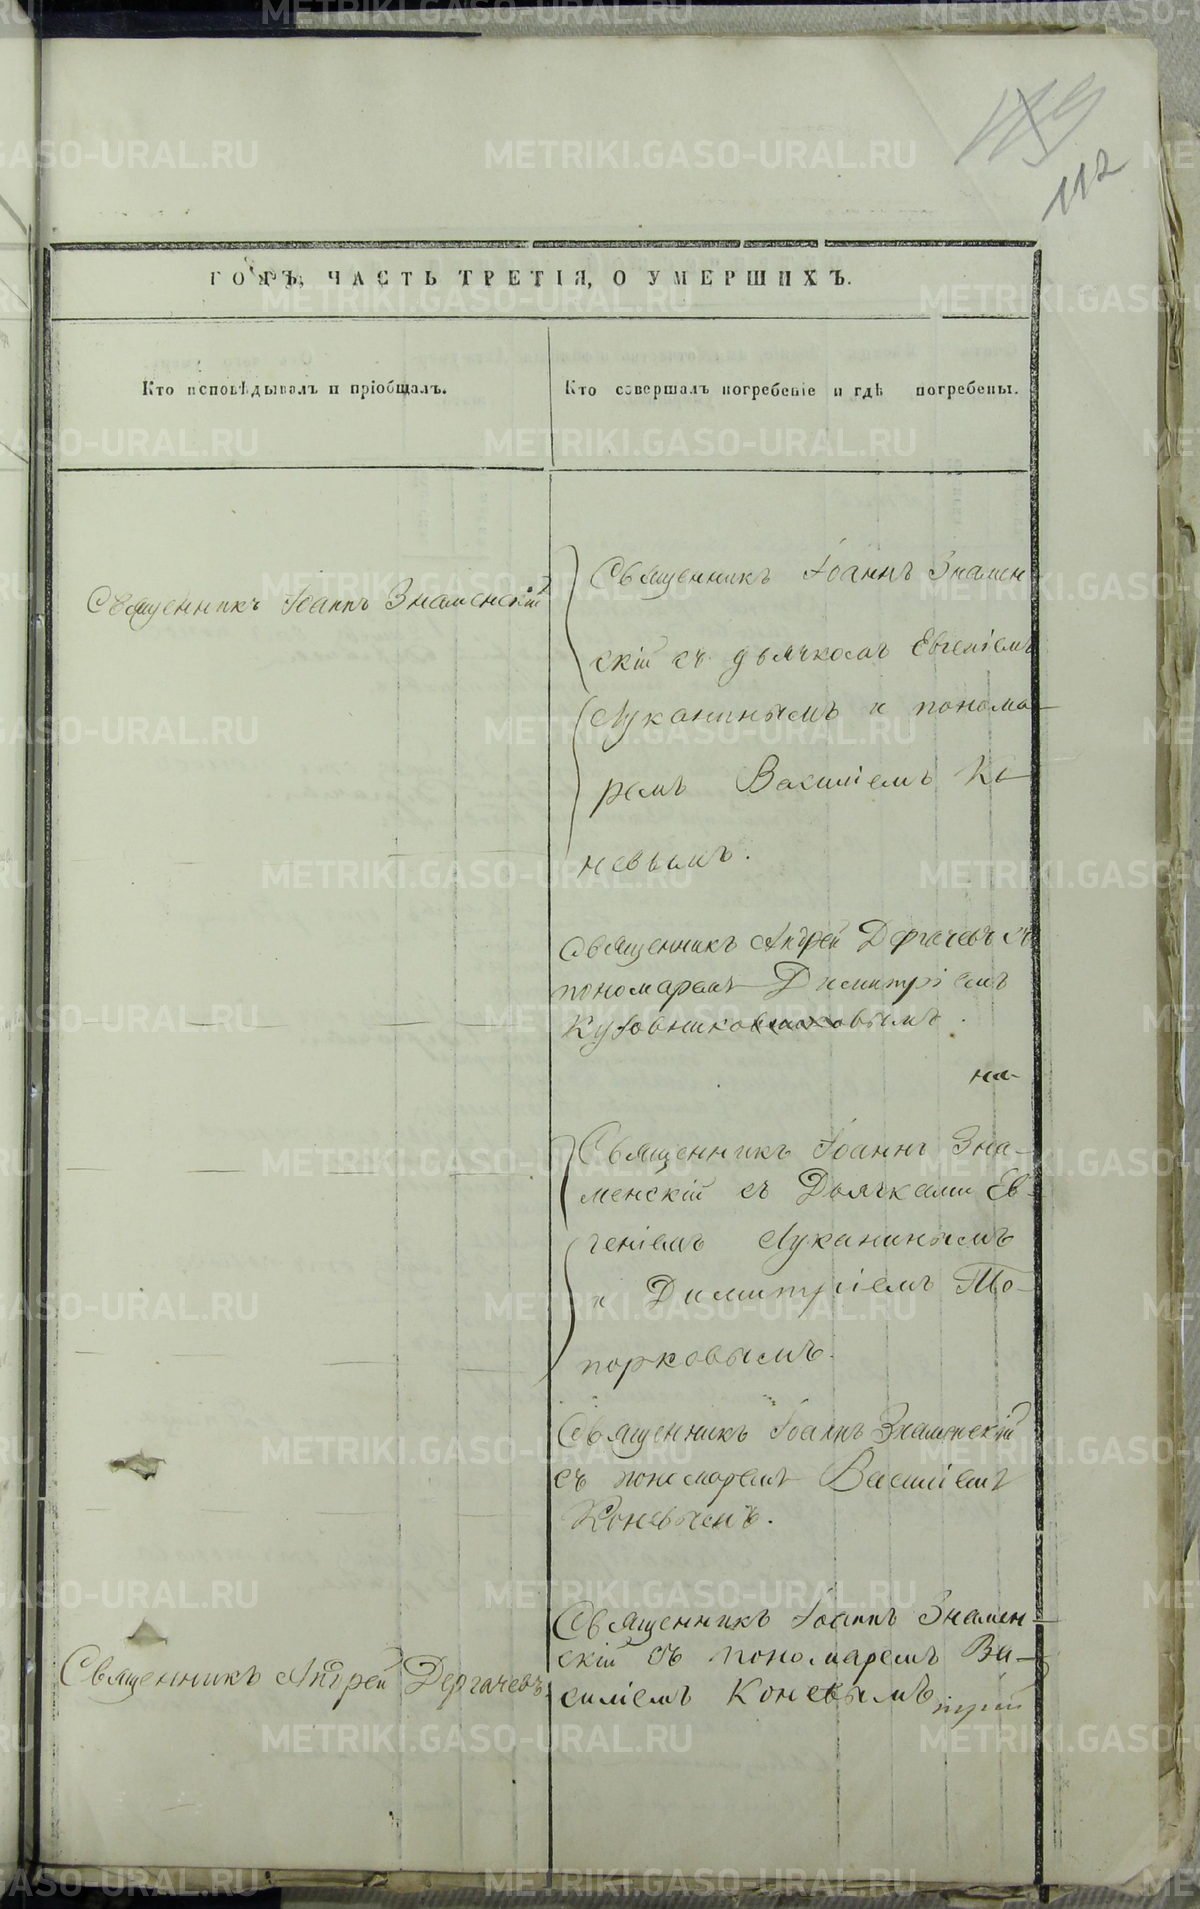 119
112
ГОДЪ, ЧАСТЬ ТРЕТІЯ, О УМЕРШИХЪ.
Кто исповѣдывалъ и пріобщалъ.
Кто совершалъ погребеніе и гдѣ погребены.
Священникъ Іоаннъ Знамен
Священникъ Іоаннъ Знаменскій
скій съ дьячкомъ Евгеніемъ
Луканинымъ и понома-
ремъ Василіемъ Ко-
невымъ.
Священникъ Андрей Дергачевъ съ
пономаремъ Димитріемъ
на-
Священникъ Іоаннъ Зна-
менскій съ Дьячками Ев-
геніемъ Луканинымъ
и Димитріемъ То-
порковымъ.
Священникъ Іоаннъ Знаменскій
съ пономаремъ Василіемъ
Коневымъ.
Священникъ Іоаннъ Знамен-
скій съ пономаремъ Ва-
Священникъ Андрей Дергачевъ
силіемъ Коневымъ
METRIKI.GASO-URAL.RU